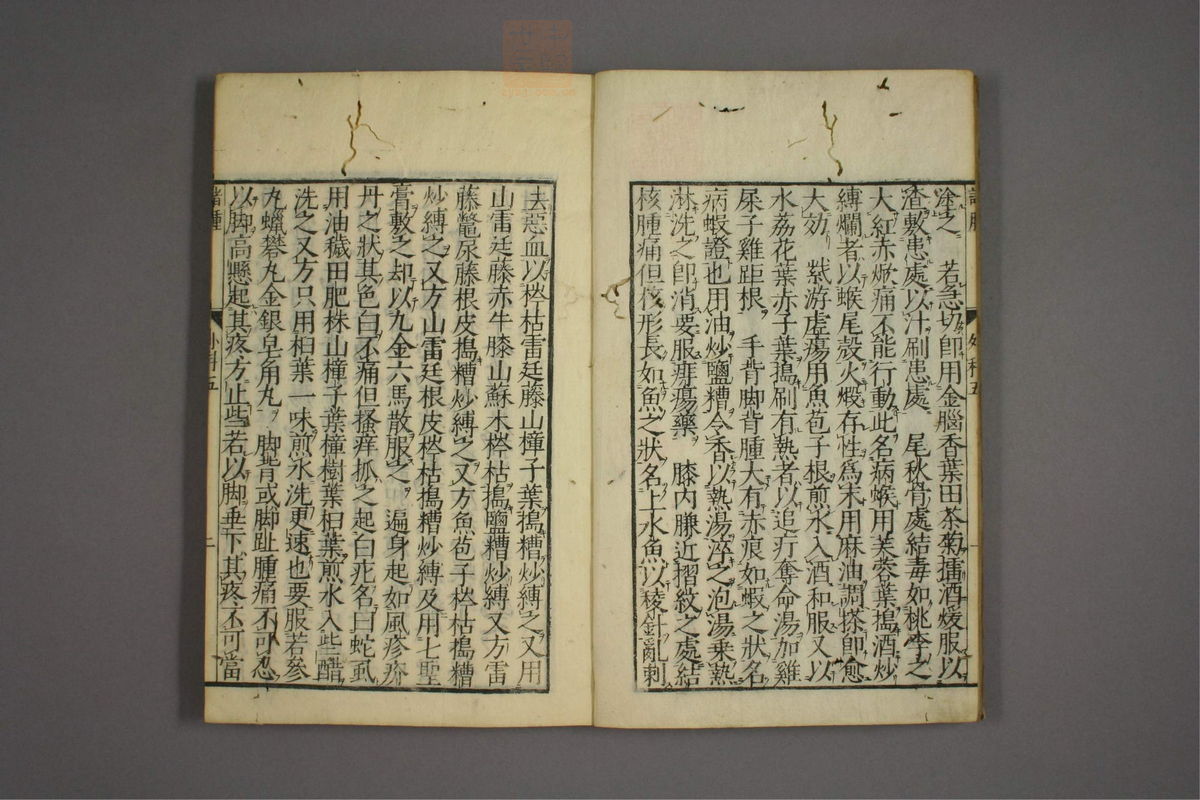 塗之 若急切即用金腦香葉田茶菊擂酒煖服以
渣敷患處以汁刷患處 尾秋骨處結毒如桃李之
大紅赤焮痛不能行動此名病蝬用芙蓉葉搗酒炒
縛爛者以蝬尾殼火煅存性為末用麻油調搽即愈
大効 紫游虛瘍用魚苞子根煎水入酒和服又以
水荔花葉赤子葉搗刷有熱者以追疔奪命湯加雞
屎子雞距根 手背脚背腫大有赤痕如蝦之狀名
病蝦證也用油炒鹽糟令香以熱湯淬之泡湯乗熱
淋洗之即消要服痈瘍藥 膝內臁近摺紋之處結
核腫痛但核形長如魚之狀名上水魚以稜針亂刺
去惡血以桚枯雷廷藤山樟子葉搗糟炒縛之又用
山雷廷藤赤牛膝山蘇木桚枯搗鹽糟炒縛又方雷
藤鼈尿藤根皮搗糟炒縛之又方魚苞子桚枯搗糟
炒縛之又方山雷廷根皮桚枯搗糟炒縛及用七聖
膏敷之却以九金六馬散服之 遍身起如風疹疥
丹之狀其色白不痛但搔痒抓之起白疕名曰蛇虱
用油穢田肥株山樟子葉樟樹葉桕葉煎水入些醋
洗之又方只用桕葉一味煎水洗更速也要服若參
丸蠟礬丸金銀皂角丸 脚背或脚趾腫痛不可忍
以脚高懸起其疼方止些若以脚垂下其疼不可當
諸腫 外科五 二